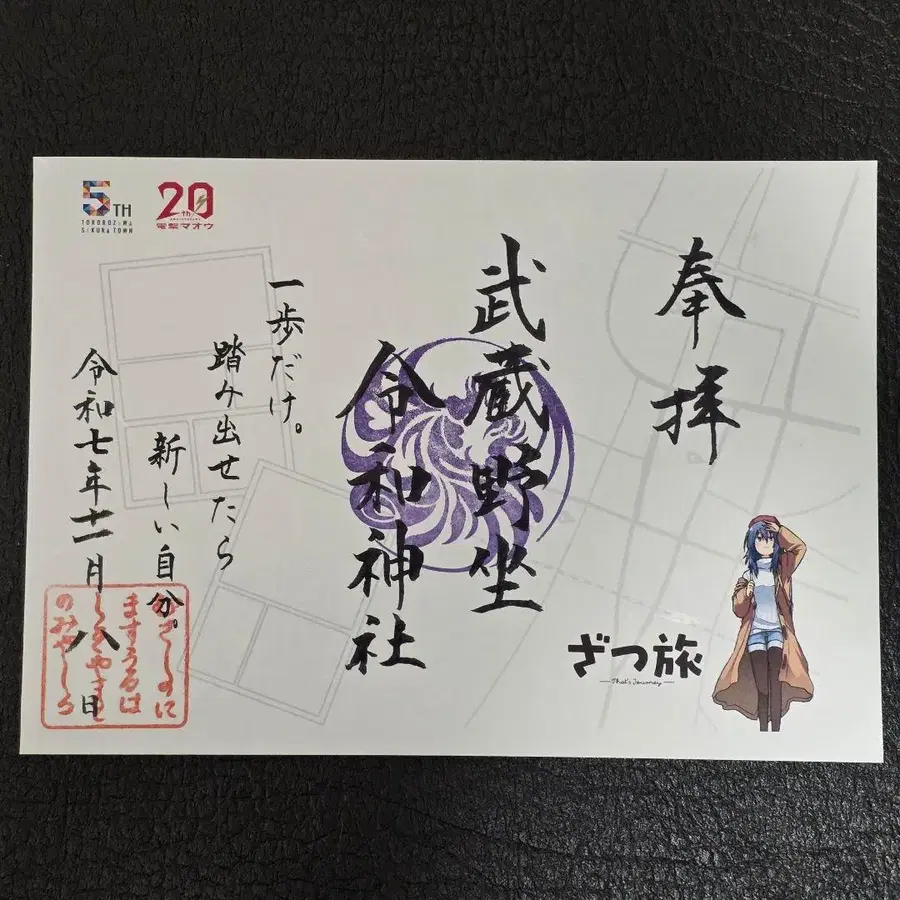 奉拝
武蔵野坐
令和神社
一歩だけ。
踏み出せたら
新しい自分。
令和七年十一月八日
むさしのに
ますうるは
しきやまと
のみやしろ
ざつ旅
That's Journey
5TH
TOKOROZAWA
SAKURA TOWN
20th
ANNIVERSARY
電撃マオウ